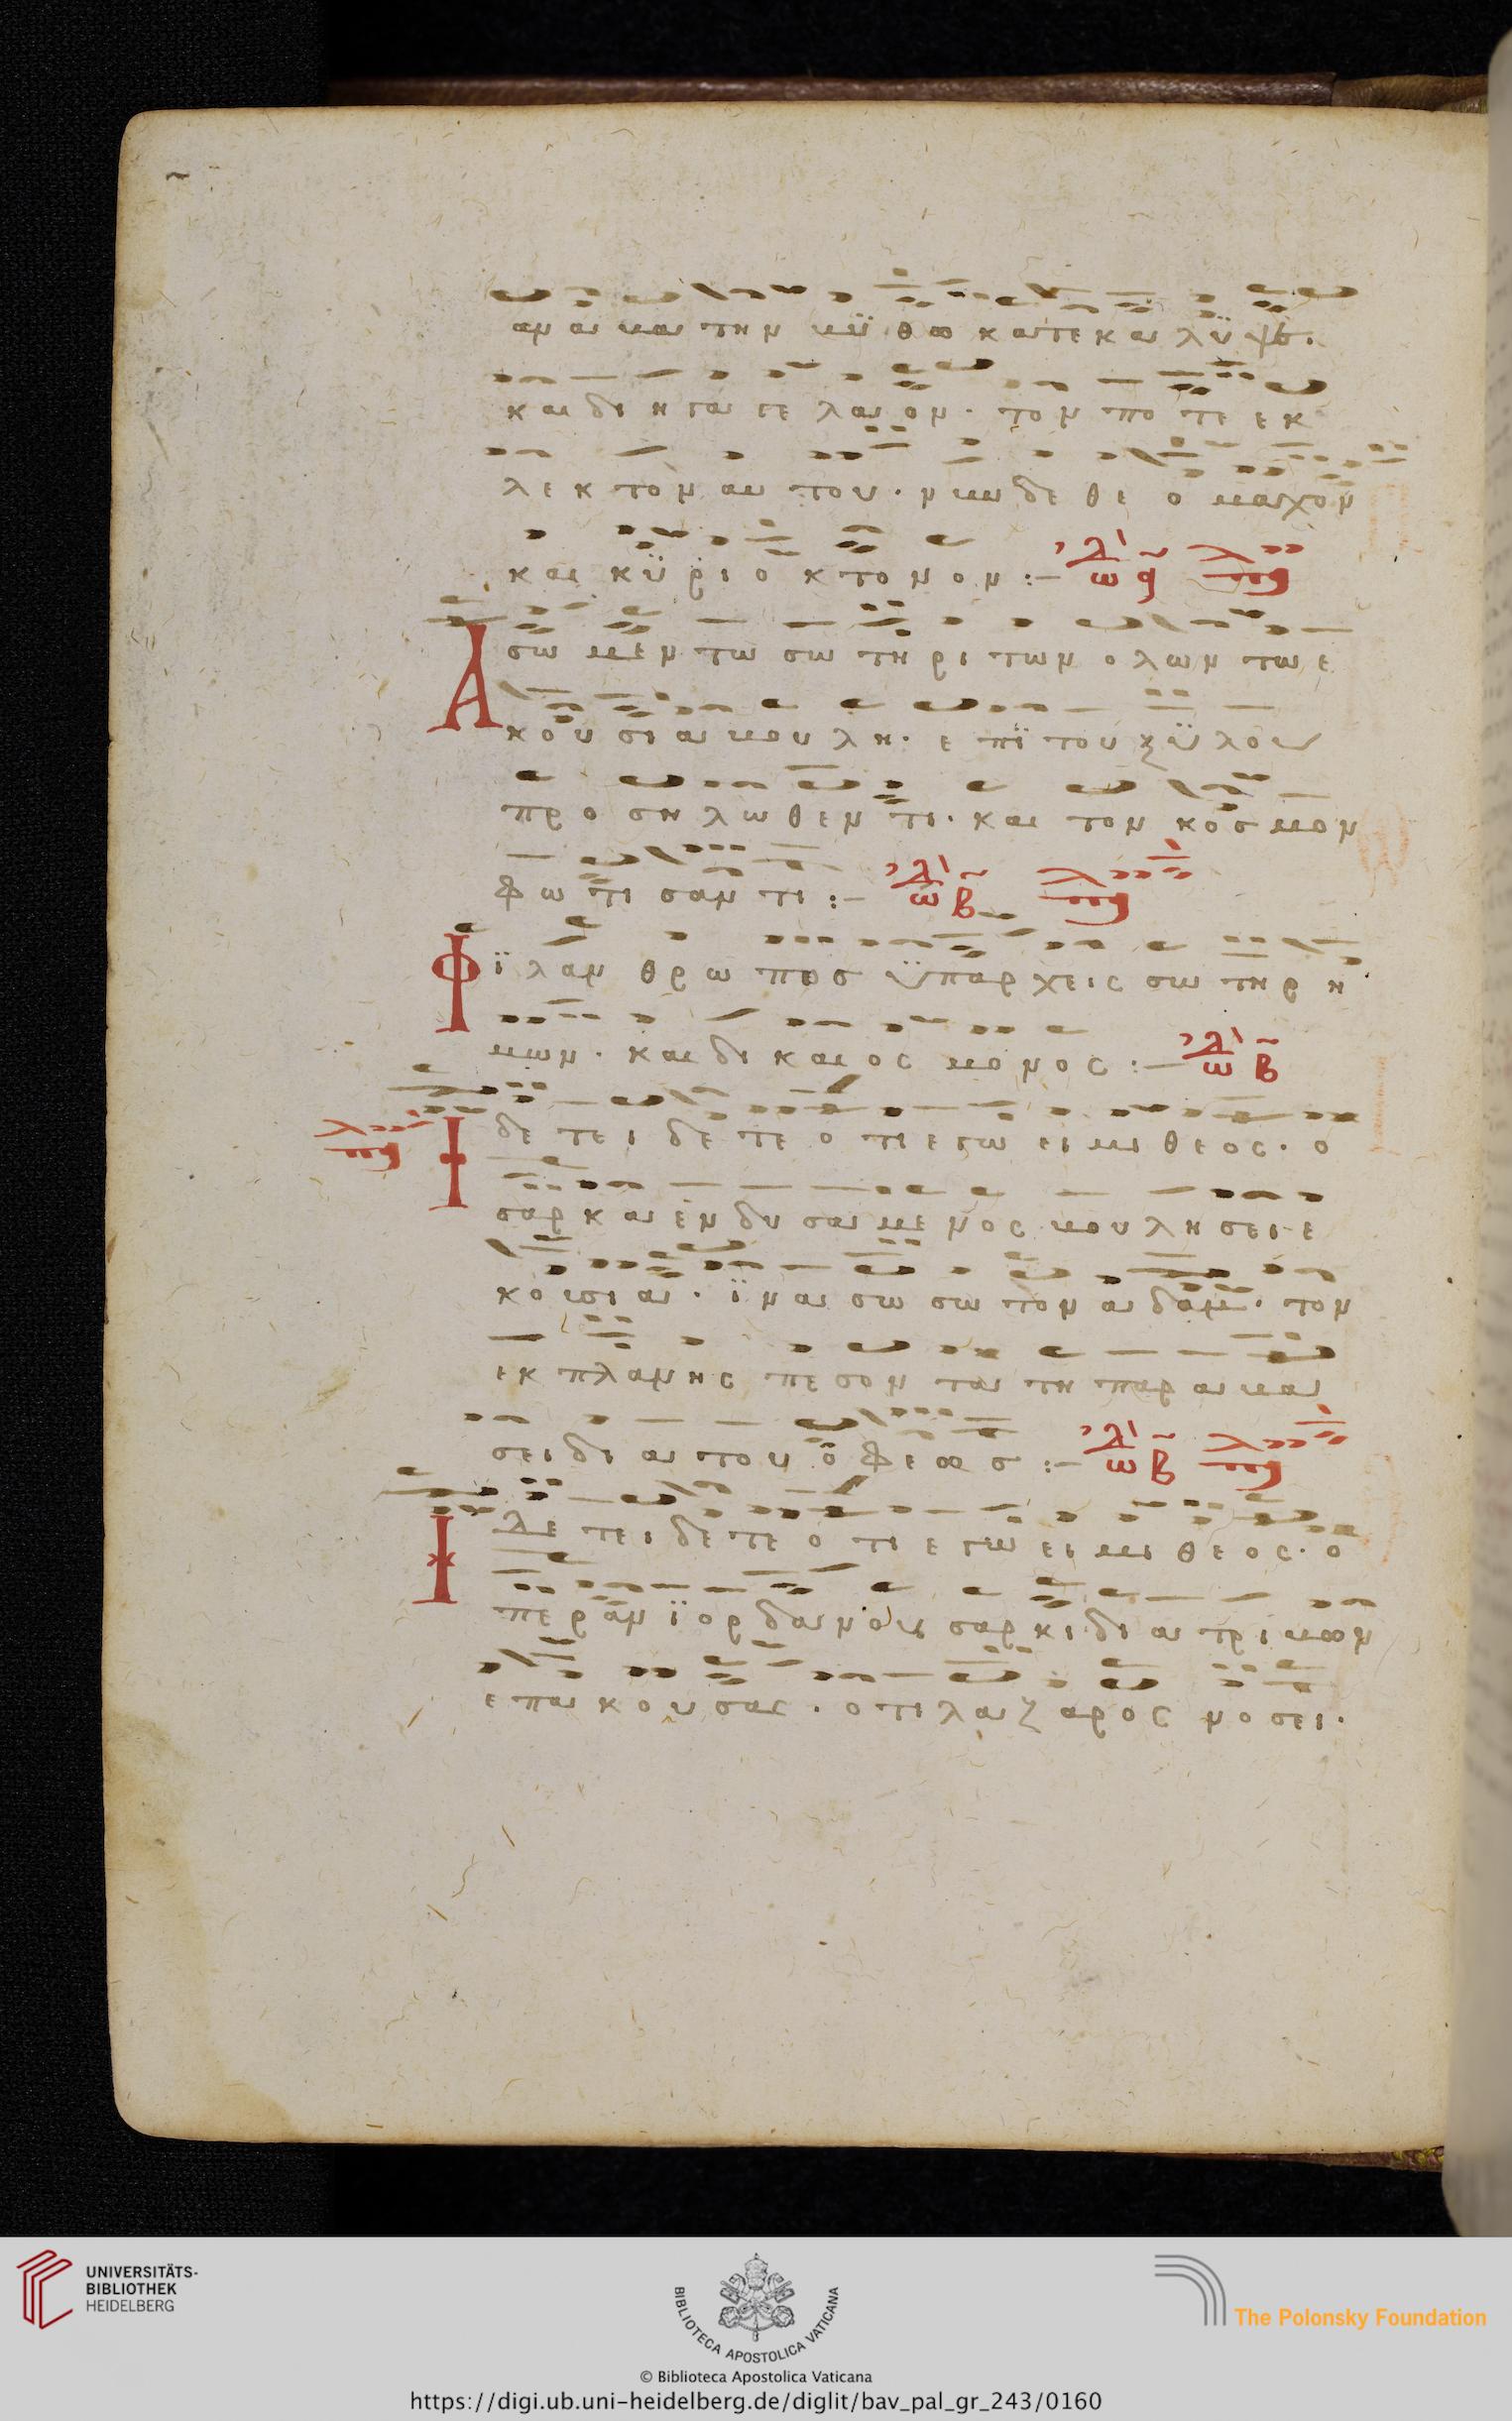 αμ α βα την βυ θω κα τε κα λυ ψε.
και δι η γα γε λα ον. τον πο τε εκ
λεκτον αυ του. νω δε θε ο μα χον
και κυ ρι ο κτο νον :– ωδ
Α σω μεν τω σω τη ρι των ο λων τω ε
κου σι α βου λη. ε πι του ξυ λου
προ ση λω θεν τι. και τον κοσ μον
φω τι σαν τι :– ωδ β
Φ ι λαν θρω πος υ παρ χεις σω τηρ η
μων. και δι και ος μο νος :– ωδ β
Ι δε τε ι δε τε ο τι ε γω ει μι θε ος. ο
σαρ κα εν δυ σα με νος βου λη σει ε
κου σι α. ι να σω σω τον α δαμ. τον
εκ πλα νης πε σον τα τη πα ρα βα
σει δι α του ο φε ως :– ωδ β
Ι δε τε ι δε τε ο τι ε γω ει μι θε ος. ο
πε ραν ι ορ δα νου σαρ κι δι α τρι βων
ε πα κου σας. ο τι λα ζα ρος νο σει.
UNIVERSITÄTS-
BIBLIOTHEK
HEIDELBERG
BIBLIOTECA APOSTOLICA VATICANA
The Polonsky Foundation
© Biblioteca Apostolica Vaticana
https://digi.ub.uni-heidelberg.de/diglit/bav_pal_gr_243/0160